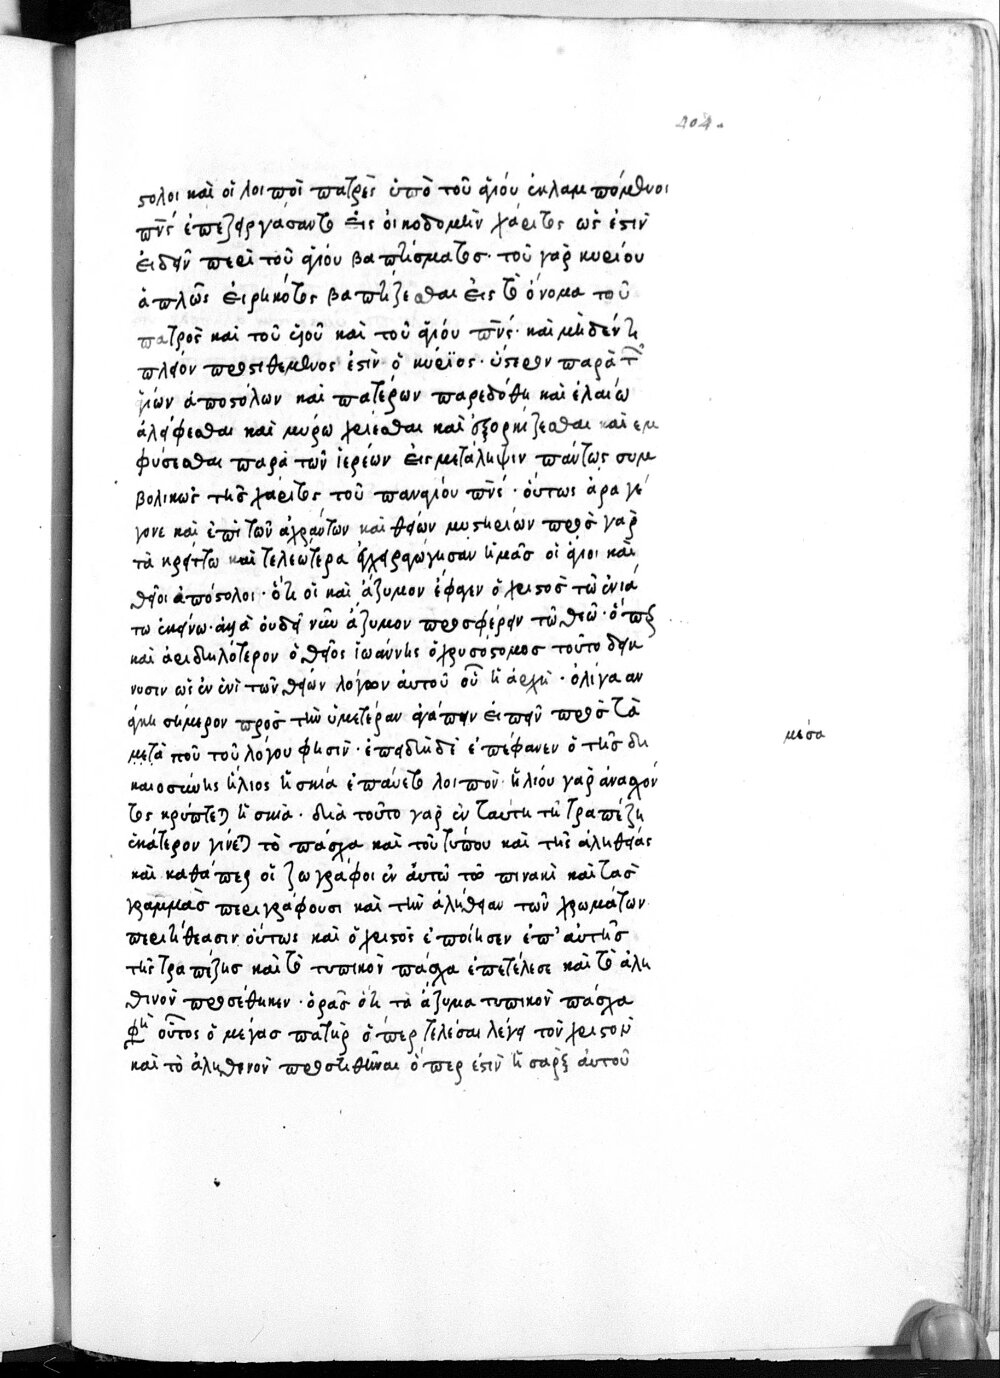 204.
στολοι καὶ οἱ λοιποὶ πατρὲς ὑπὸ τοῦ ἁγίου ἐκλαμπόμενοι
πνς ἐπεξεργάσαντο εἰς οἰκοδομὴν χάριτος ὡς ἐστὶν
εἰδεῖν περὶ τοῦ ἁγίου βαπτίσματος· τοῦ γὰρ κυρίου
ἁπλῶς εἰρηκότος βαπτίζεσθαι εἰς τὸ ὄνομα τοῦ
πατρὸς καὶ τοῦ υἱοῦ καὶ τοῦ ἁγίου πνς· καὶ μηδέν τι
πλέον προστιθέμενος ἐστὶν ὁ κύριος· ὕστερον παρὰ τῶν
ἁγίων ἀποστόλων καὶ πατέρων παρεδόθη καὶ ἐλαίω
ἀλείφεσθαι καὶ μύρω χρίεσθαι καὶ ἐξορκίζεσθαι καὶ εμ
φύσεσθαι παρὰ τῶν ἱερέων εἰς μετάληψιν πάντως συμ
βολικῶς τῆς χάριτος τοῦ παναγίου πνς· οὕτως ἄρα γέ
γονε καὶ ἐπὶ τῶν ἀχράντων καὶ θείων μυστηρίων πρὸς γὰρ
τὰ κρείττω καὶ τελεώτερα ἐχειραγώγησαν ἡμᾶς οἱ ἅγιοι καὶ
θεῖοι ἀπόστολοι· ὅτι οἱ καὶ ἄζυμον ἔφαγεν ὁ χριστὸς τῶ ἐνιαύ
τω ἐκείνω· ἀλλὰ οὐδεὶς νῦν ἄζυμον προσφέρειν τῶ θεῶ· ὅπερ
καὶ ἀριδηλότερον ὁ θεῖος ἰωάννης ὁ χρυσόστομος τοῦτο δεικ
νυσιν ὡς ἐν ἑνὶ τῶν θείων λόγων αὐτοῦ οὗ ἡ ἀρχὴ· ὀλίγα αν
άγκη σήμερον πρὸς τὴν ὑμετέραν ἀγάπην εἰπεῖν πρὸς τὰ
μετὰ που τοῦ λόγου φησὶν· ἐπειδὴ δὲ ἐπέφανεν ὁ τῆς δι
καιοσύνης ἥλιος ἡ σκιὰ ἐπαύετο λοιπὸν· ἡλίου γὰρ ἀνασχόν
τος κρύπτεται ἡ σκιὰ· διὰ τοῦτο γὰρ ἐν ταύτη τῆ τραπέζη
ἑκάτερον γίνεται τὸ πάσχα καὶ τοῦ τύπου καὶ τῆς ἀληθείας
καὶ καθάπερ οἱ ζωγράφοι ἐν αὐτῶ τῶ πινακὶ καὶ τὰς
γραμμὰς περιγράφουσι καὶ τὴν ἀλήθειαν τῶν χρωμάτων
περιτιθέασιν οὕτως καὶ ὁ χριστὸς ἐποίησεν ἐπ' αὐτῆς
τῆς τραπέζης καὶ τὸ τυπικὸν πάσχα ἐπετέλεσε καὶ τὸ ἀλη
θινὸν προσέθηκεν· ὁρᾶς ὅτι τὰ ἄζυμα τυπικὸν πάσχα
φη οὗτος ὁ μέγας πατὴρ ὅπερ τελέσαι λέγει τὸν χριστὸν
καὶ τὸ ἀληθινὸν προστιθῆναι ὅπερ ἐστὶν ἡ σὰρξ αὐτοῦ
μέσα